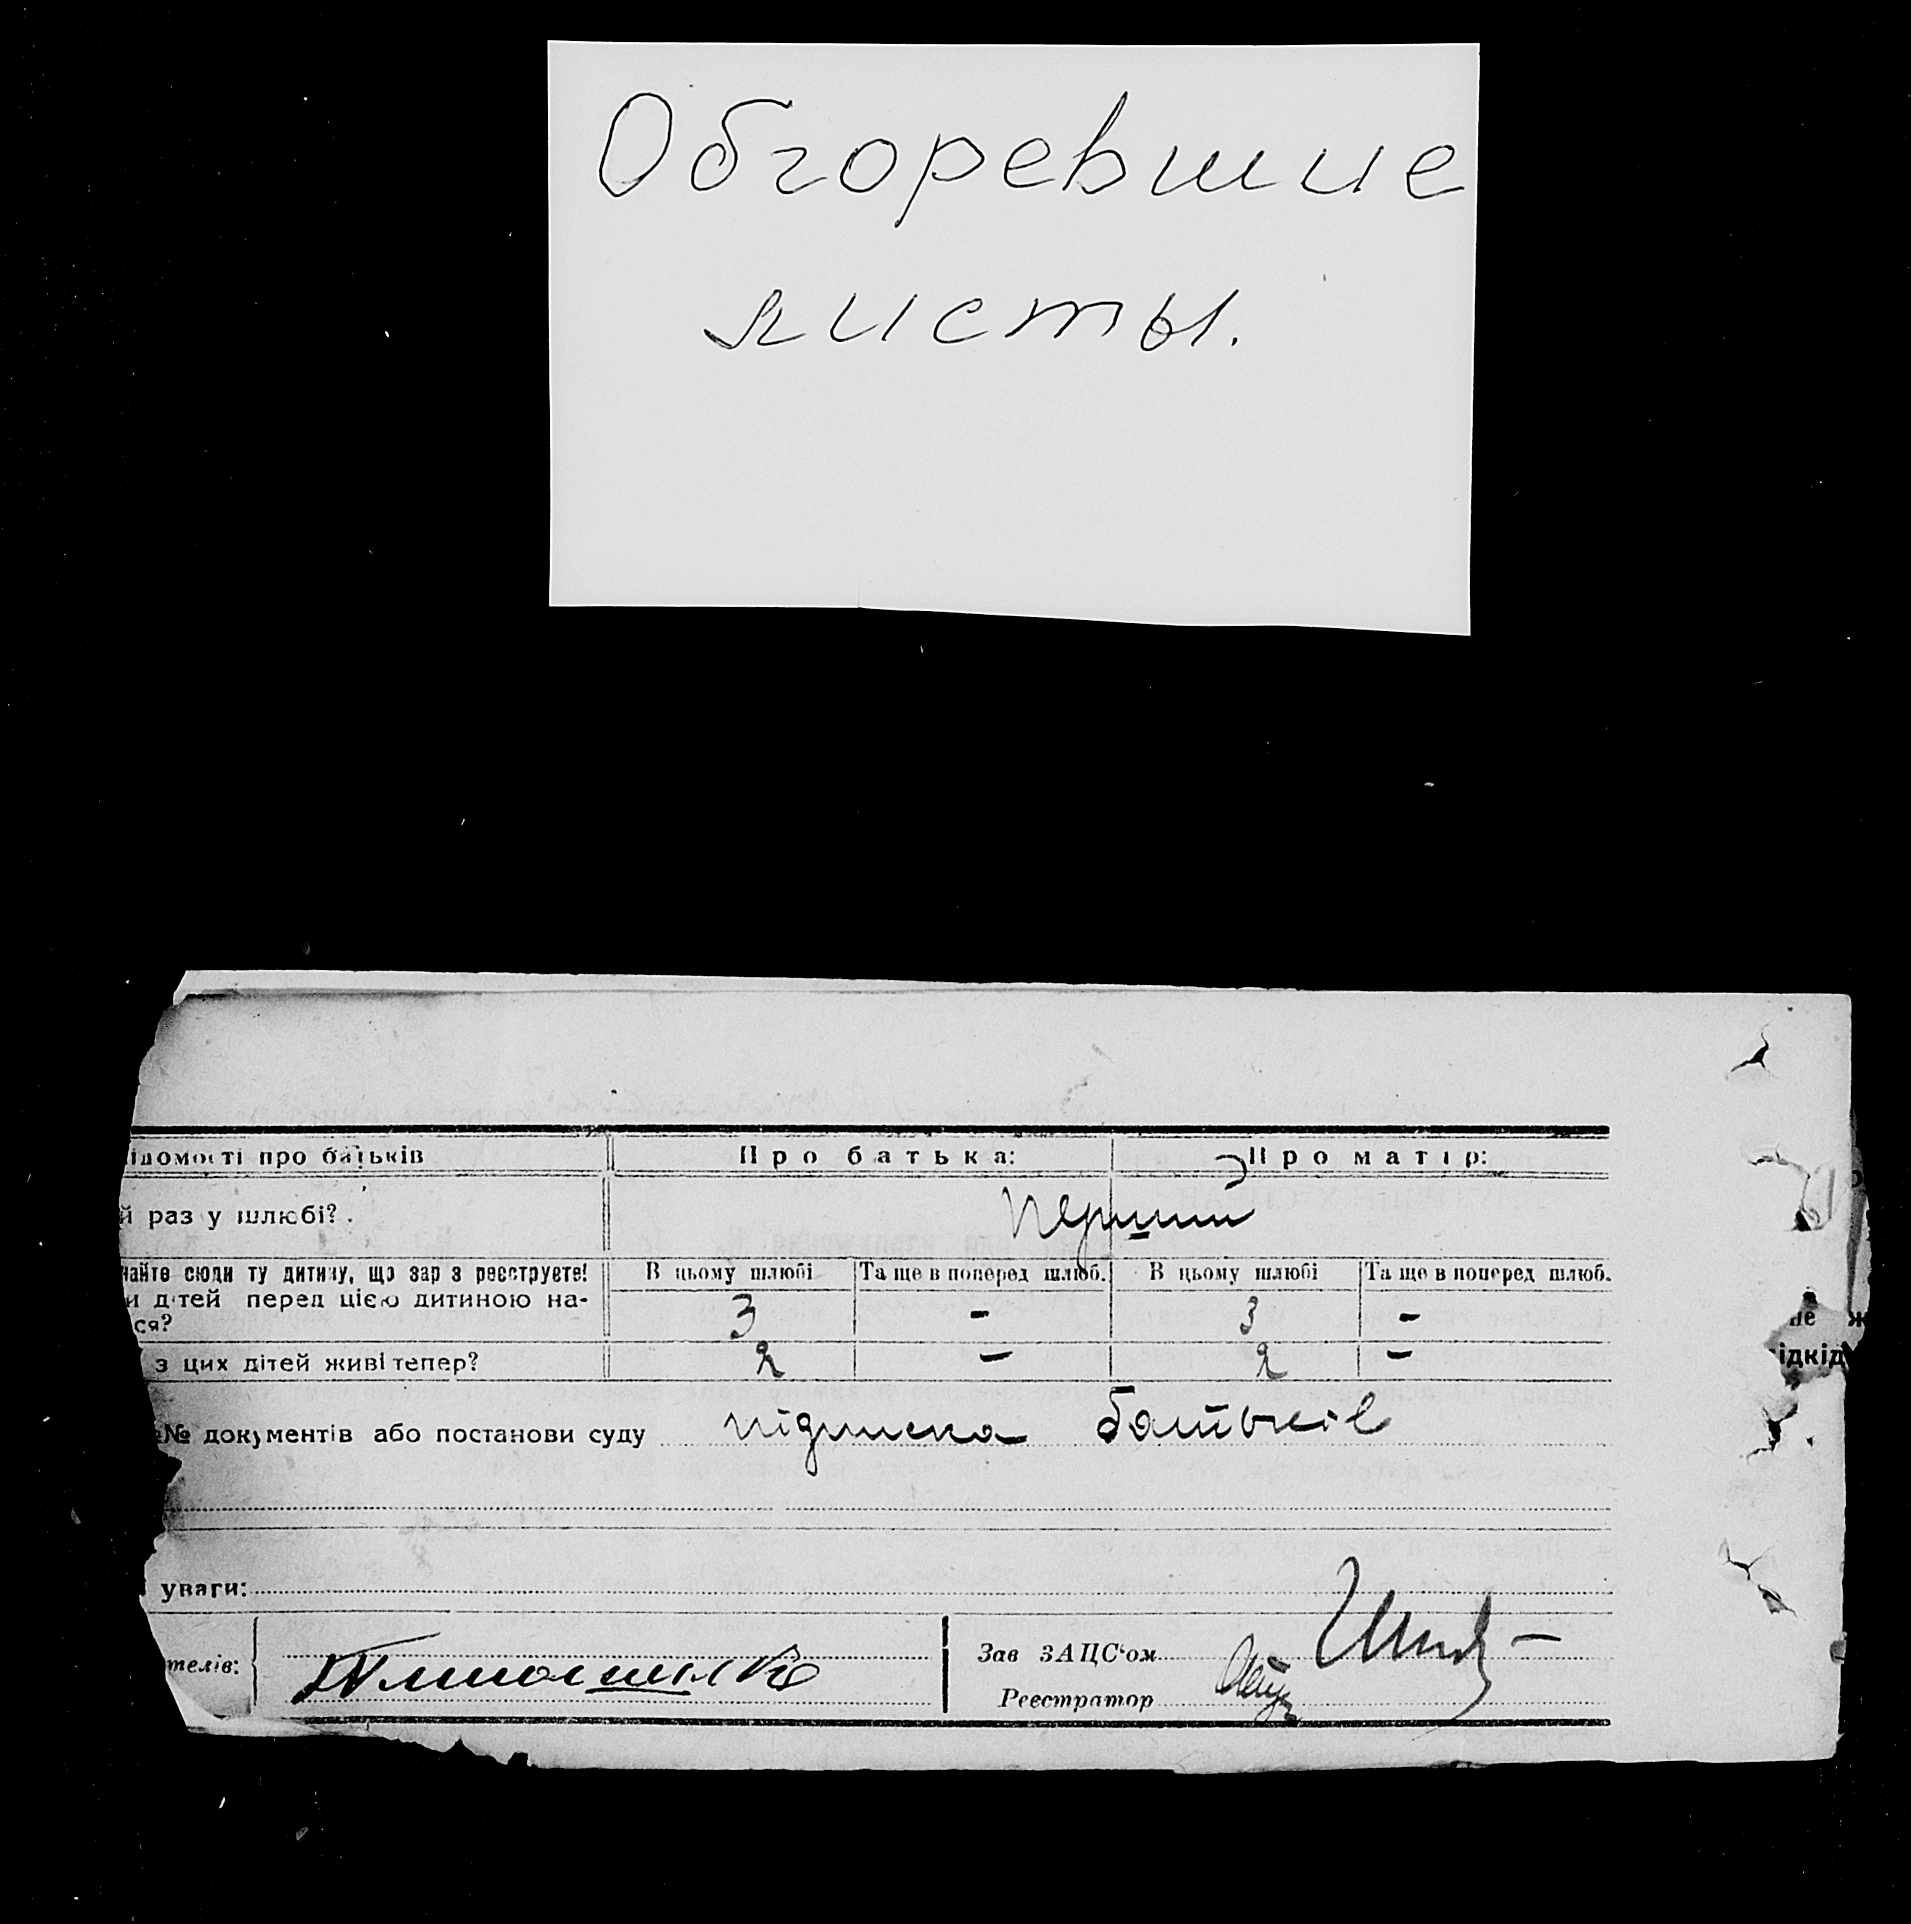 Обгоревшие
листы.
ідомості про батьків
Про батька:
Про матір:
й раз у шлюбі?
перший
найте сюди ту дитину, що зар з реєструєте!
и дітей перед цією дитиною на-
ся?
В цьому шлюбі
Та ще в поперед шлюб.
В цьому шлюбі
Та ще в поперед шлюб.
3 - 3 -
з цих дітей живі тепер?
2 - 2 -
№ документів або постанови суду підписка батьків
уваги:
телів:
Зав ЗАЦС'ом
Реєстратор
не ж
ідкід